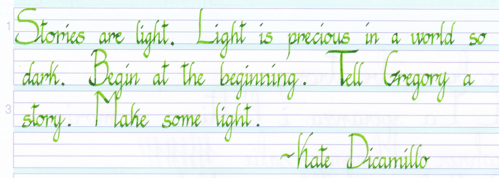 Stories are light. Light is precious in a world so
dark. Begin at the beginning. Tell Gregory a
story. Make some light.
~Kate Dicamillo